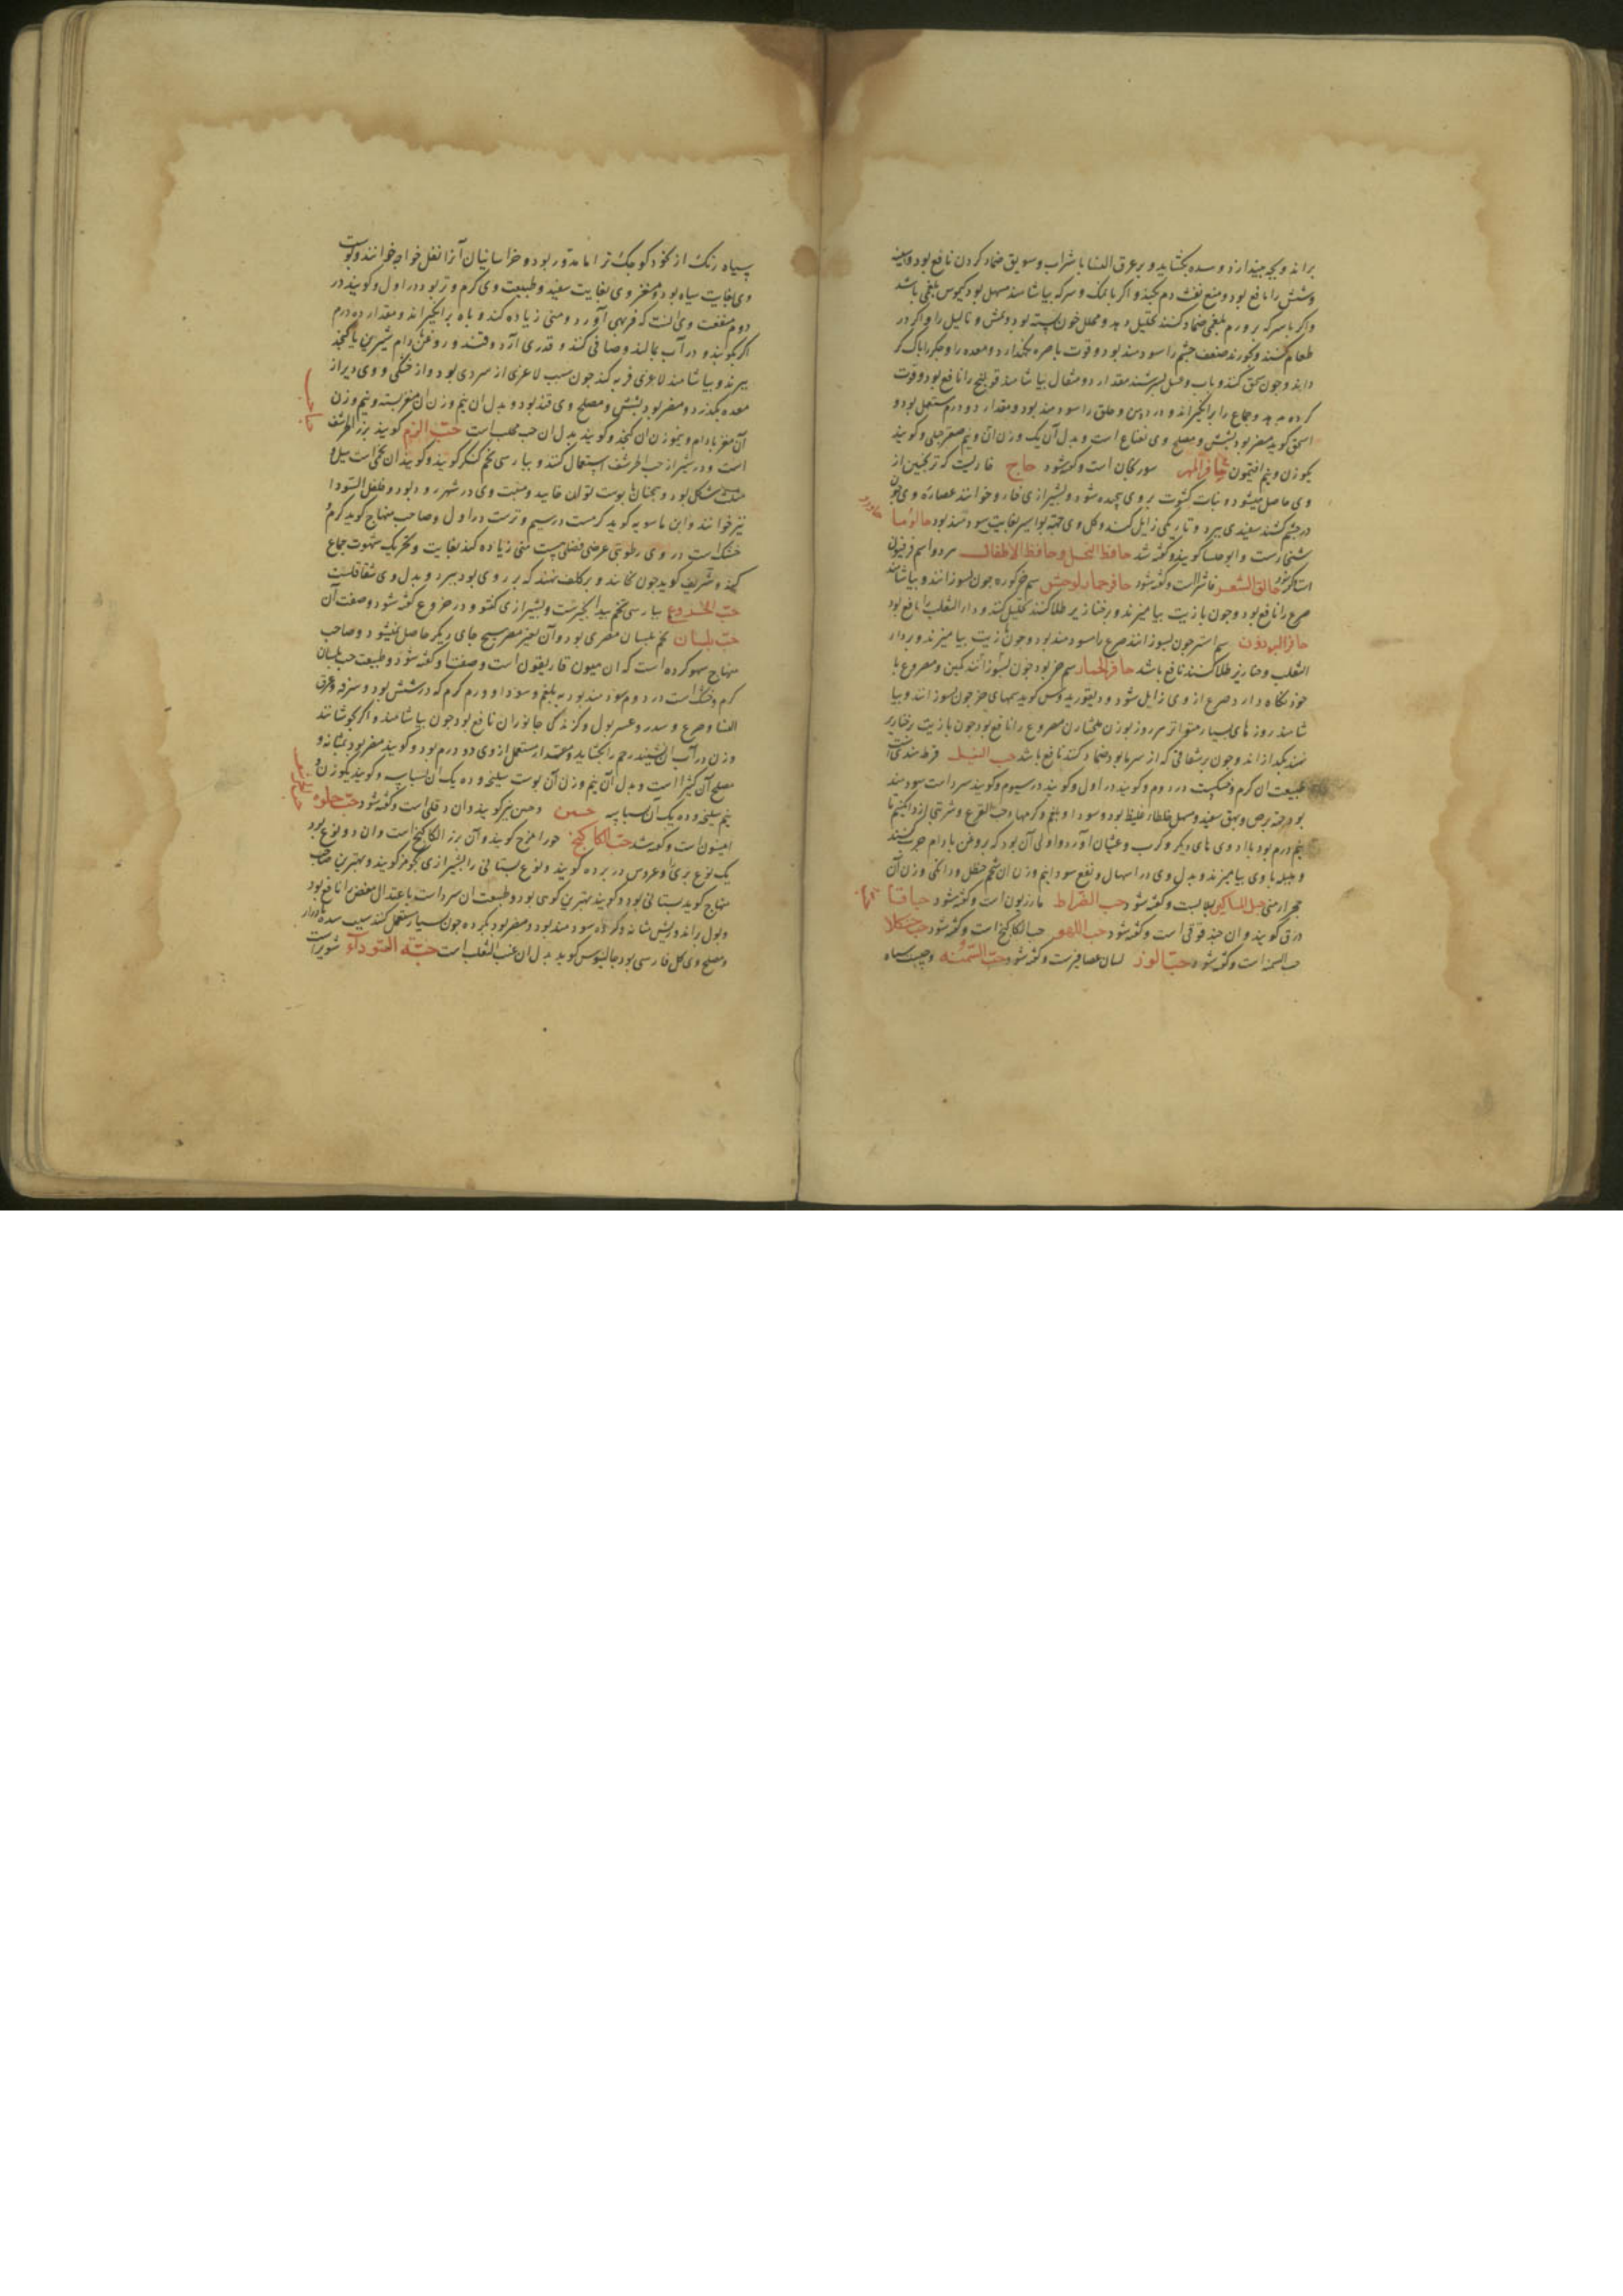 براند و بچه بیندازد و سده بکشاید و بر عرق النسا با شراب و سویق ضماد کردن نافع بود و سینه
و شش را نافع بود و منع نفث دم بکند و اگر با نمک و سرکه بیاشامند مسهل بود کیموس بلغمی باشد
و اگر با سرکه بر ورم بلغمی ضماد کنند تحلیل دهد و محلل خون بسته بود و نمش و ثالیل را و اگر در
طعام کنند و بخورند ضعف چشم را سودمند بود و قوت باصره نگذارد و معده را و جگر را پاک کر
داند و چون سحق کنند و باب و عسل بسرشند مقدار دو مثقال بیاشامند قولنج را نافع بود و قوت
کرده بدهد و جماع را برانگیزاند و درد دهن و حلق را سودمند بود و مقدار دو درم مستعمل بود و
اسحق گوید مضر بود بشش و مصلح وی نعناع است و بدل آن یک وزن آن و نیم صعتر جبلی و گویند
یکوزن و نیم افتیمون حافر المهر سورنجان است و گفته شود حاج خاریست که ترنجبین از
وی حاصل میشود و نبات کشوث بر وی پیچده شود و بشیرازی خار و خوانند عصاره وی چون
در چشم کشند سفیدی ببرد و تاریکی زایل کند و گل وی جهة بواسیر بغایت سودمند بود حالوما
شنجارست و ابو حلسا گویند و گفته شد حافظ النحل و حافظ الاطفال مرد و اسم فرفیون
است گفته شود حالق الشعر فاشرا است و گفته شود حافر حمار الوحش سم خر گوره چون بسوزانند و بیاشامند
صرع را نافع بود و چون با زیت بیامیزند و بر خنازیر طلا کنند تحلیل کند و داء الثعلب را نافع بود
حافر البردون سم استر چون بسوزانند صرع را سودمند بود و چون با زیت بیامیزند و بر داء
الثعلب و خنازیر طلا کنند نافع باشد حافر الحمار سم خر بود چون بسوزانند نکین و مصروع با
خود نگاه دارد صرع از وی زایل شود و دیقوریدوس گوید سمهای خر چون بسوزانند و بیا
شامند روزهای بسیار متواتر هر روز بوزن فلنجارین مصروع را نافع بود چون با زیت بر خنازیر
نهند بگدازاند و چون بر شقاقی که از سرما بود ضماد کنند نافع باشد حب النیل قرطم هندی است
طبیعت آن گرم و خشکست در دوم و گویند در اول و گویند در سیوم و گویند سرد است سودمند
بود جهة برص و بهق سفید و مسهل خلطها غلیظ بود و سودا و بلغم و کرمها و حب القرع و شربتی از دانگی تا
نیم درم بود با داروی های دیگر و کرب و غثیان آورد و اولی آن بود که بروغن بادام چرب کنند
و هلیله با وی بیامیزند و بدل وی در اسهال و نفع سودا نیم وزن آن شحم حنظل و دانکی وزن آن
حجر ارمنی حبل المساکین لبلابست و گفته شود حب الضراط مازریون است و گفته شود حباقا
ذرق گویند و آن حندقوقی است و گفته شود حب اللهو حب الکاکنج است و گفته شود حب کلا
حب السمنه است و گفته شود حب الوز لسان عصافیرست و گفته شود حب السمنه و حبیست سیاه
سیاه رنگ از نخود کوچک تر اما مدور بود و خراسانیان آنرا نقل خواجه خوانند و پوست
وی بغایت سیاه بود و مغز وی بغایت سفید و طبیعت وی گرم و تر بود در اول و گویند در
دوم منفعت وی آنست که فربهی آورد و منی زیاده کند و باه برانگیزاند و مقدار ده درم
اگر بکوبند و در آب بمالند و صافی کنند و قدری آرد و قند و روغن بادام شیرین با کنجد
بپزند و بیاشامند لاغری فربه کند چون سبب لاغری از سردی بود و از خشکی و وی دیر از
معده بگذرد و مضر بود بشش و مصلح وی قند بود و بدل آن نیم وزن آن مغز پسته و نیم وزن
آن مغز بادام و نیموزن آن کنجد و گویند بدل آن حب محلب است حب الزم گویند بزر الحرشف
است و در شیراز حب الحرشف استعمال کنند و بپارسی تخم کنگر گویند و گویند آن تخمی است میل و
مثلث شکل بود و همچنان با پوست توان خایید و منبت وی در شهرزور بود و فلفل السودا
نیز خوانند و ابن ماسویه گوید گرمست در سیم و ترست در اول و صاحب منهاج گوید گرم و
خشک است در وی رطوبتی عرضی فضلی هست منی زیاده کند بغایت و تحریک شهوت جماع
کند و شریف گوید چون بخایند و بر کلف نهند که بر روی بود ببرد و بدل وی شقاقلست
حب الخروع بپارسی تخم بیدانجیرست و بشیرازی کنتو و در خروع گفته شود و صفت آن
حب بلسان تخم بلسان مصری بود و آن بغیر مصر هیچ جای دیگر حاصل نمیشود و صاحب
منهاج سهو کرده است که آن میون قاریقون است و صفت او گفته شود و طبیعت حب بلسان
گرم و خشک است در دوم سودمند بود به بلغم و سودا و ورم گرم که در شش بود و سرفه و عرق
النسا و صرع و سدر و عسر بول و گزندگی جانوران نافع بود چون بیاشامند و اگر بجوشانند
و زن در آب آن نشیند رحم را بکشاید و مقدار مستعمل از وی دو درم بود و گویند مضر بود بمثانه و
مصلح آن کثیرا است و بدل آن نیم وزن آن پوست سلیخه و ده یک آن بسباسه و گویند یکوزن و
نیم سلیخه و ده یک آن بسباسه حسن و حسن نیز گویند و آن دقلی است و گفته شود حب حلوه
انیسون است و گفته شد حب الکاکنج جوز المرج گویند و آن بزر الکاکنج است و آن دو نوع بود
یک نوع بری و عروس در پرده گویند و نوع بستانی را بشیرازی کچومز گویند و بهترین صاحب
منهاج گوید بستانی بود و گویند بهترین کوهی بود و طبیعت آن سرد است باعتدال مغص را نافع بود
و بول براند و ریش مثانه و گرده سودمند بود و مضر بود بگرده چون بسیار مستعمل کنند سبب سده و ادرار
و مصلح وی گل فارسی بود جالینوس گوید بدل آن عنب الثعلب است حبة السوداء شونیز است